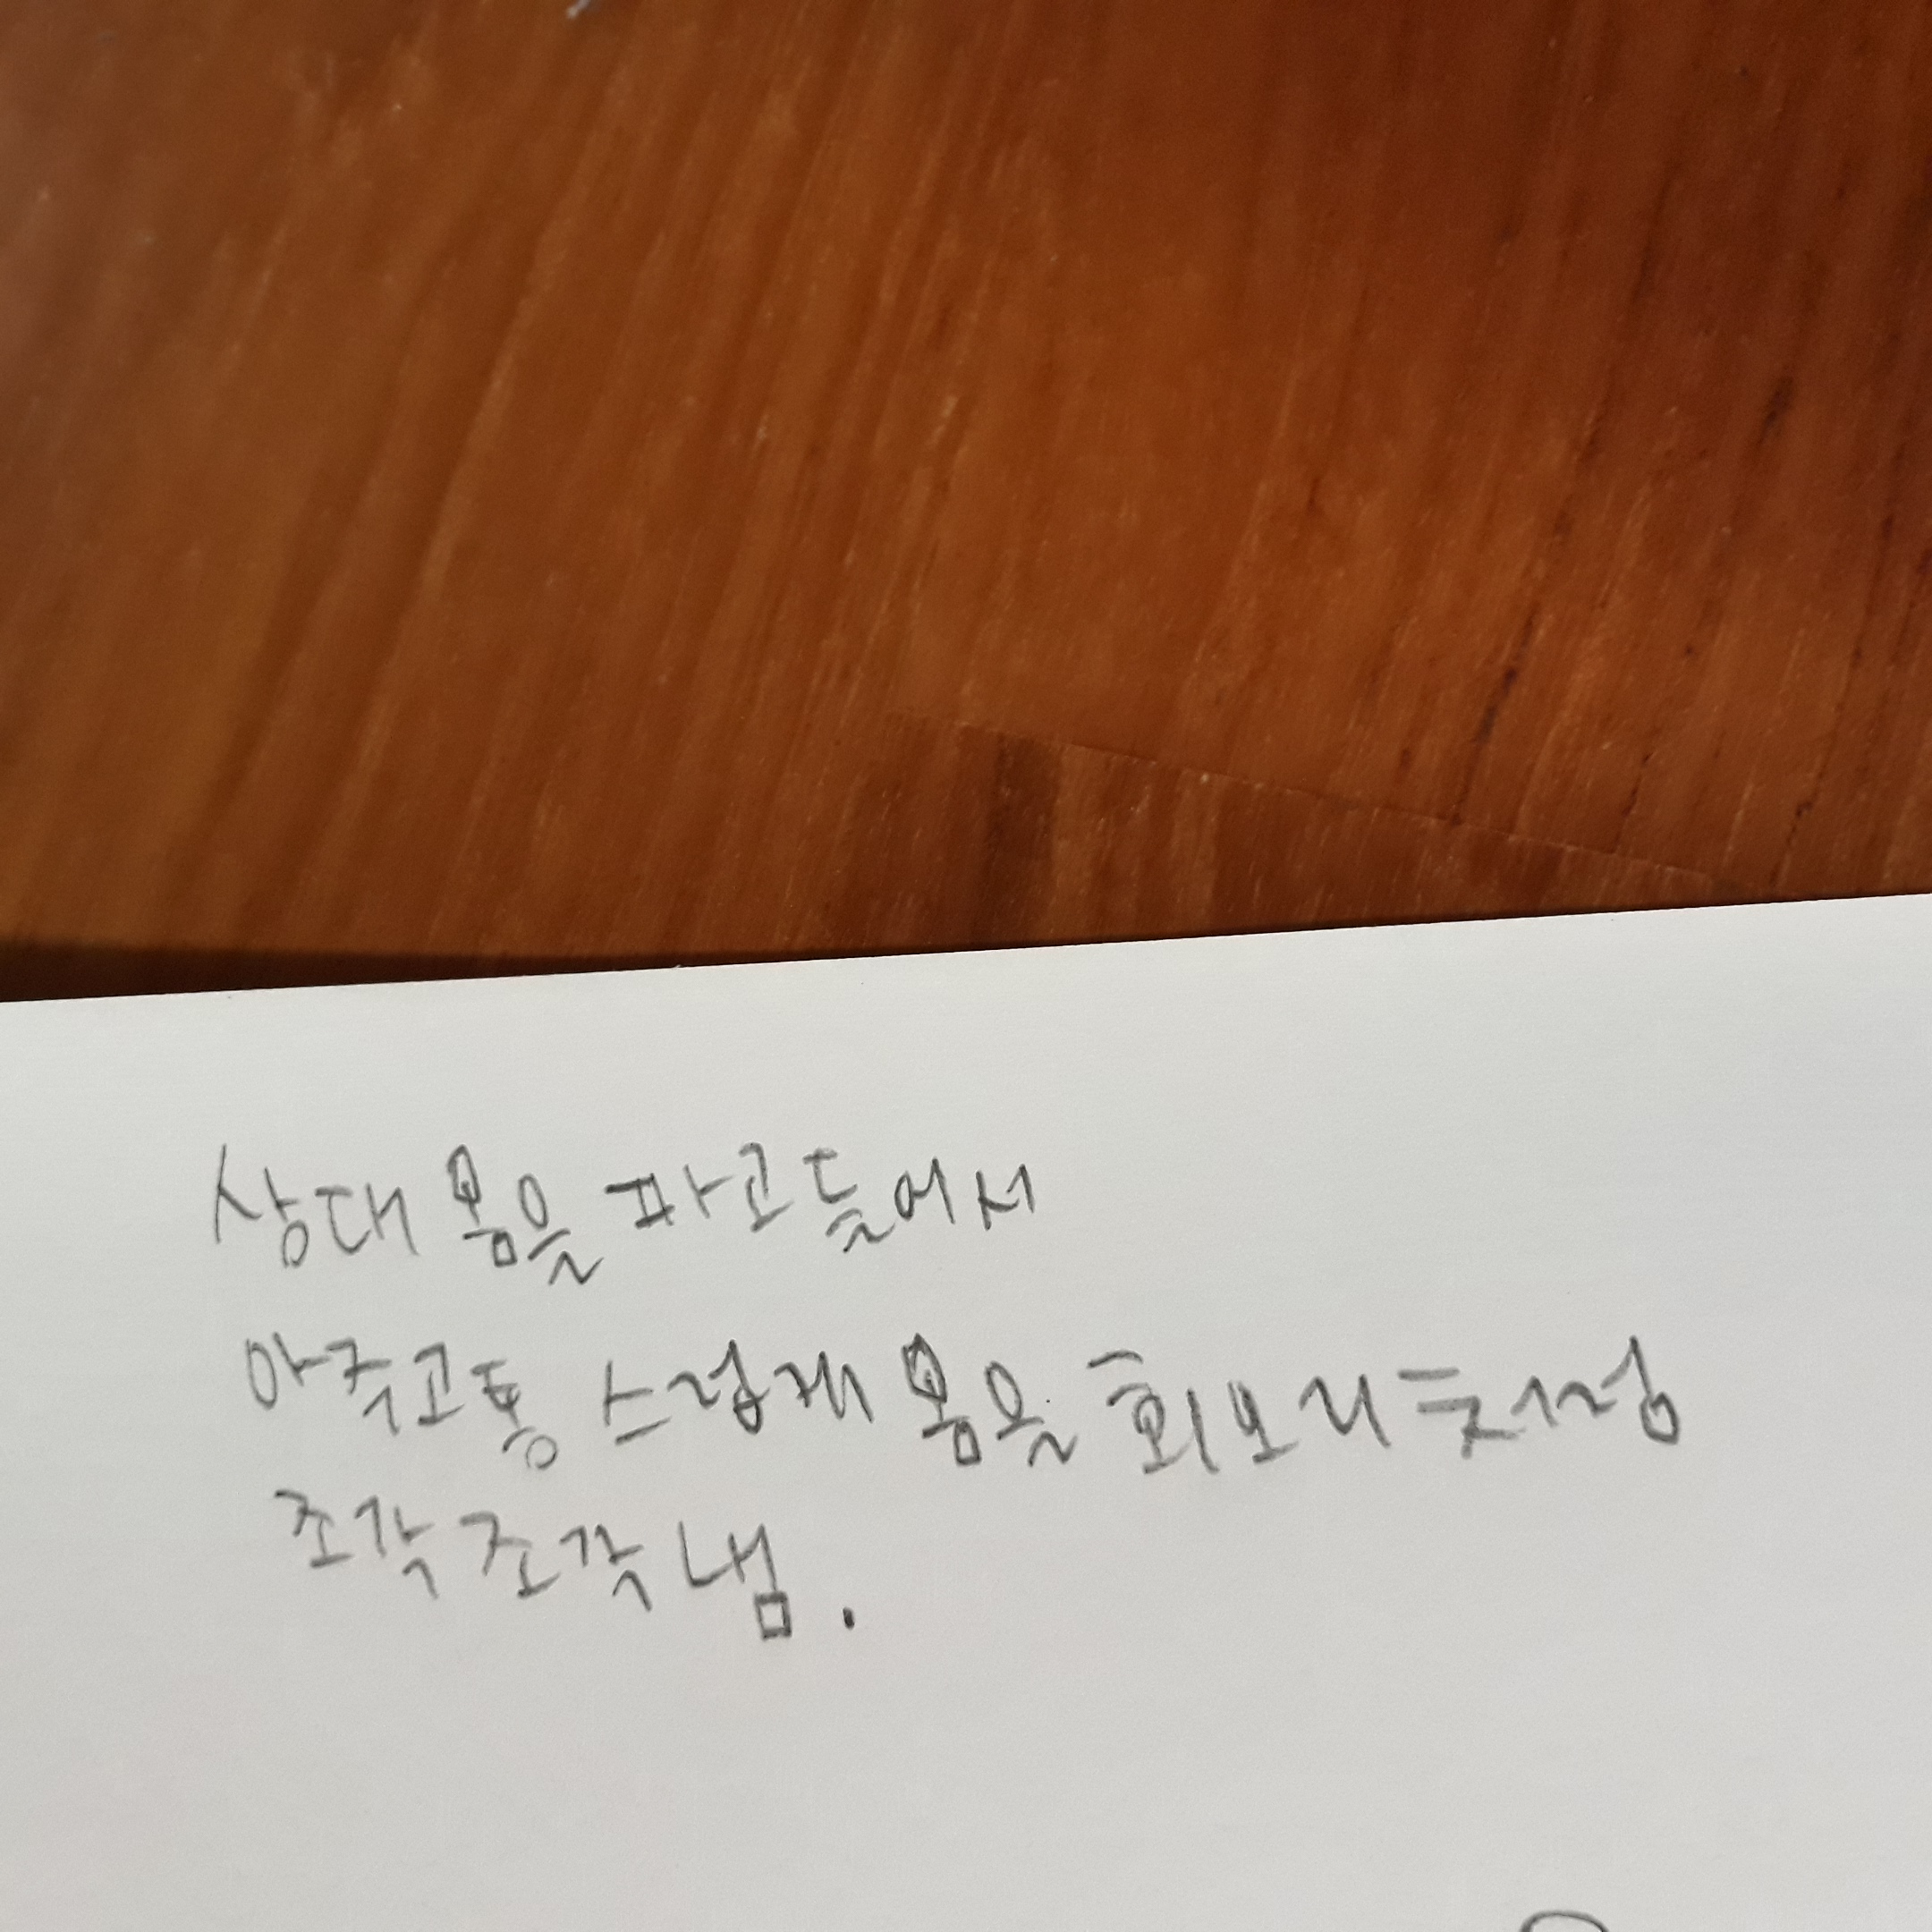 상대 몸을 파고들어서
아주고통 스럽게 몸을 회오리 처럼
조각조각 냄.